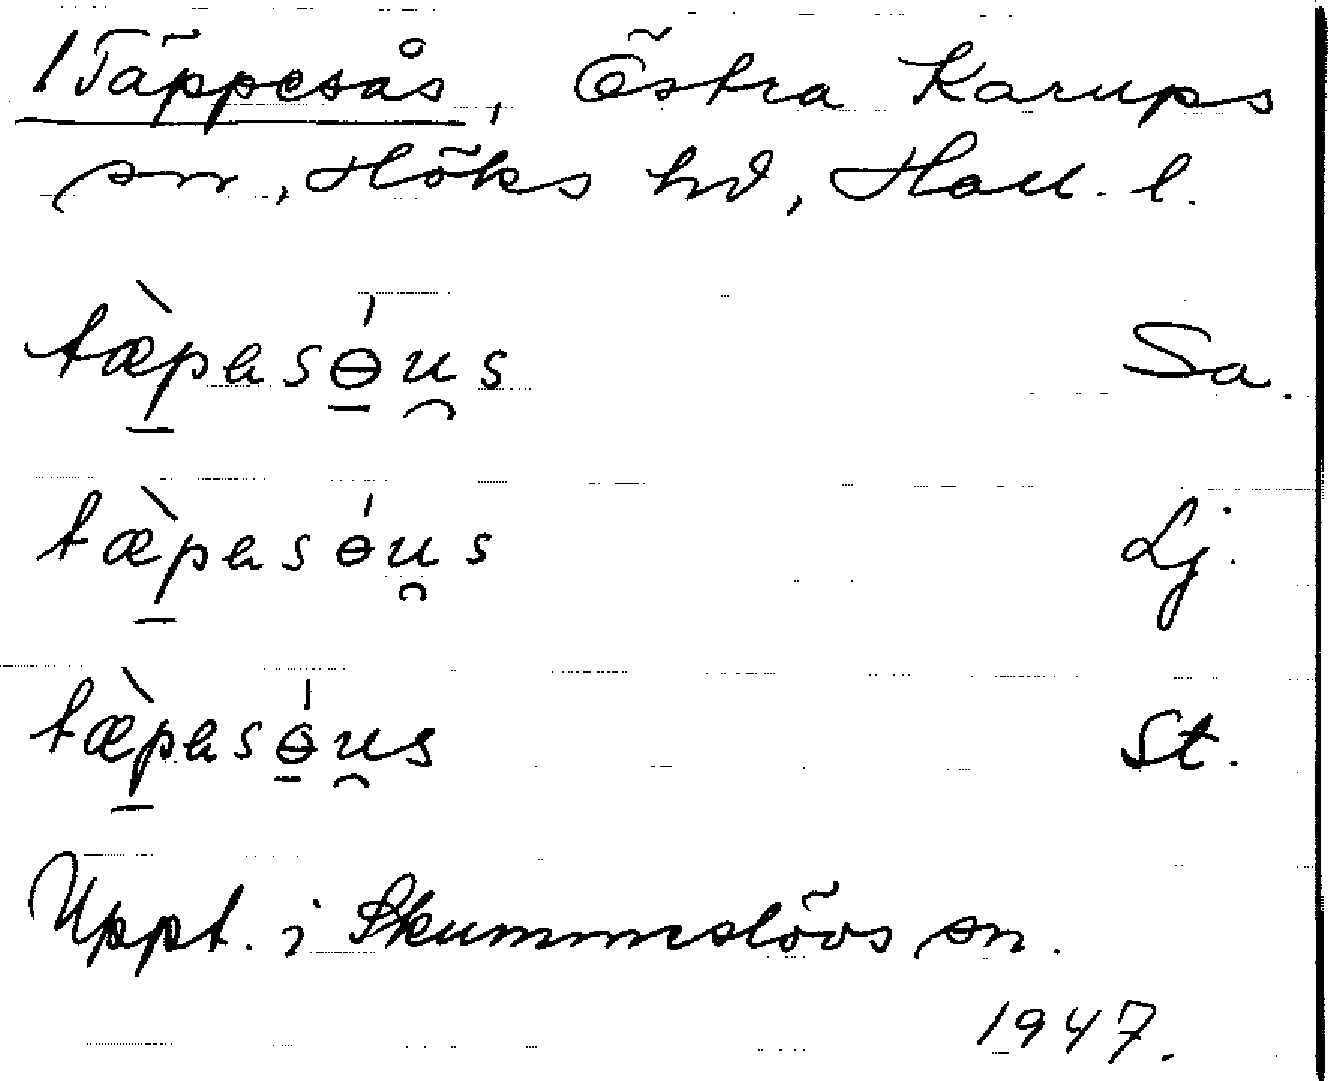 1 Täppesås, Östra Karups
sn, Höks hd, Hall. l.
tæ̀pɐsɵ́u̯s Sa.
tæ̀pɐsɵ́u̯s Lj.
tæ̀pɐsɵ́u̯s St.
Uppt. i Skummeslövs sn.
1947.